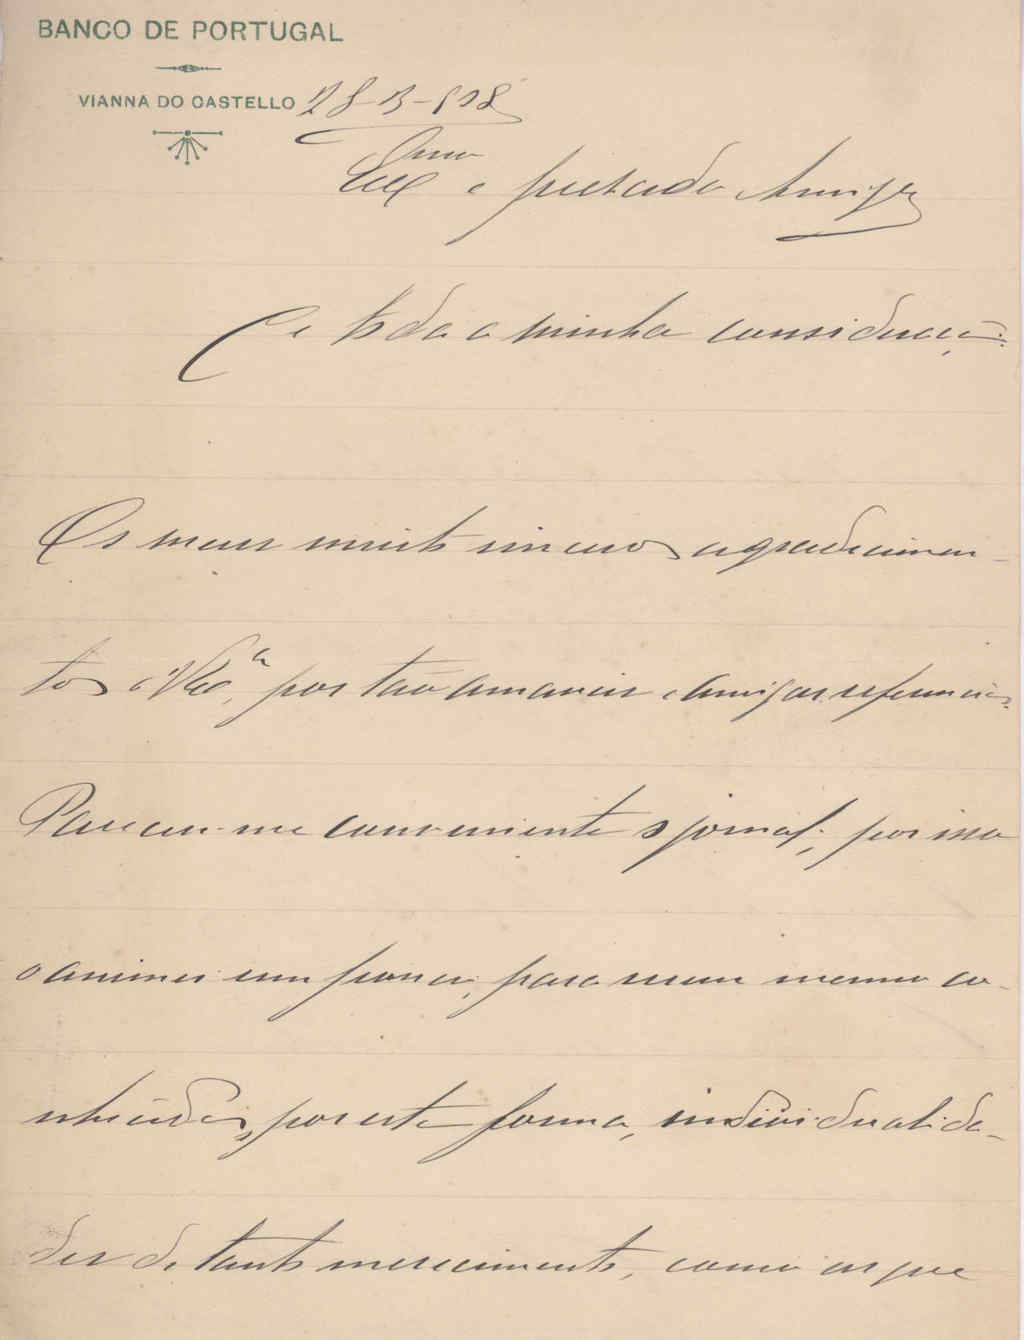 BANCO DE PORTUGAL
VIANNA DO CASTELLO 28-3-908
Exmo e prezado Amigo
e toda a minha consideração.
Os meus muito sinceros agradecimen-
tos a V. Exa, por tão amaveis e amigas referencias.
Pareceu-me conveniente o jornal; por isso
o animei um pouco, para serem mesmo co-
nhecidas, por esta forma, individualida-
des de tanto merecimento, como as que